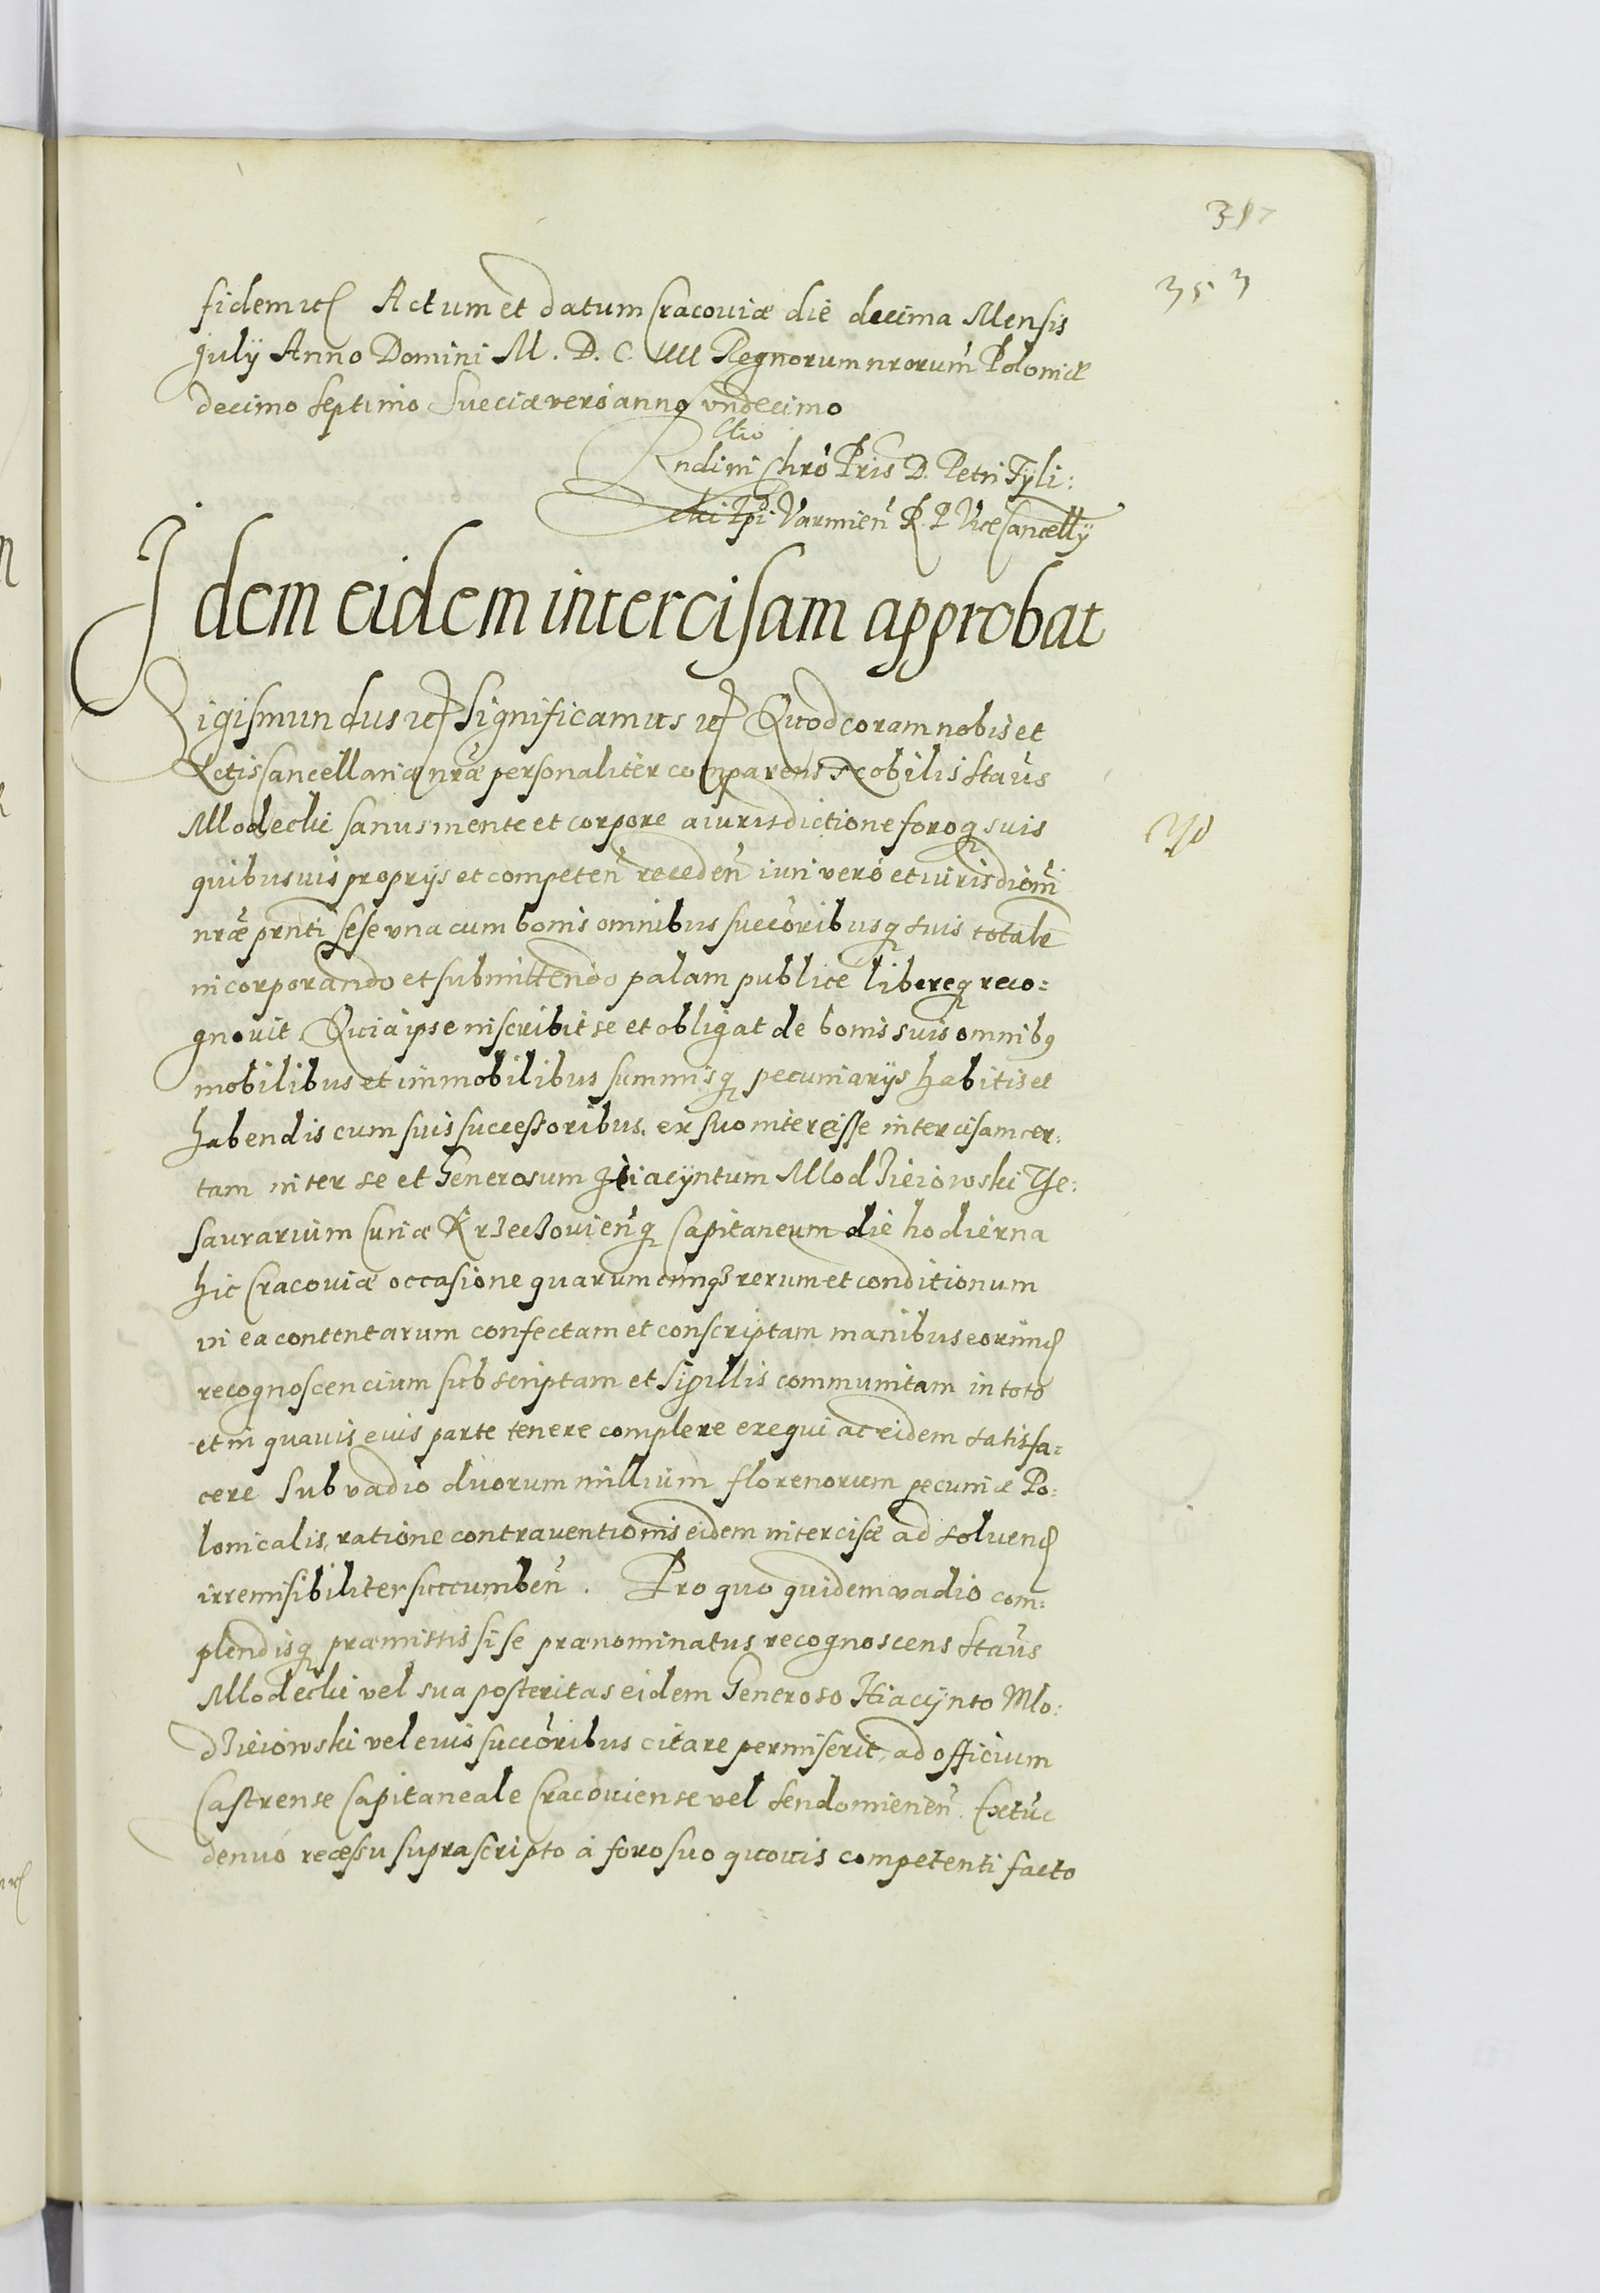 353
fidem etc Actum et datum Cracouiæ die decima Mensis
Julÿ Anno Domini M. D. C. IIII Regnorum nrorum Poloniæ
decimo septimo Sueciæ vero anno vndecimo
ctio
Rndi in Chro Pris D. Petri Tÿli:
cki Epi Varmien R. P. Vice Cancellÿ
Idem eidem intercisam approbat
Sigismundus etc Significamus etc Quod coram nobis et
Actis Cancellariæ nræ personaliter comparens Nobilis Staus
Mlodecki sanus mente et corpore a iurisdictione foroq suis
quibusuis proprijs et competen receden iuri vero et iurisdioni
nræ prnti sese vna cum bonis omnibus succoribusq suis totalr
incorporando et submittendo palam publice libereq reco:
gnouit. Quia ipse inscribit se et obligat de bonis suis omnibq
mobilibus et immobilibus summisq pecuniarijs habitis et
habendis cum suis successoribus. ex suo interesse intercisam cer:
tam inter se et Generosum Hiacÿntum Mlodzieiowski The:
saurarium Curiæ Krzeczouienq Capitaneum die hodierna
hic Cracouiæ occasione quarumcunq rerum et conditionum
in ea contentarum confectam et conscriptam manibus eorund
recognoscencium subscriptam et sigillis communitam in toto
et in quauis eius parte tenere complere exequi ac eidem satisfa:
cere sub vadio duorum millium florenorum pecuniæ Po:
lonicalis, ratione contrauentionis eidem intercisæ ad soluend
irremisibiliter succumben. Pro quo quidem vadio com:
plendisq præmissis si se prænominatus recognoscens Staus
Mlodecki vel sua posteritas eidem Generoso Hiacÿnto Mlo:
dzieiowski vel eius succoribus citare permiserit, ad officium
Castrense Capitaneale Cracouiense vel Sendomirien. Extuc
denuo recessu suprascripto a foro suo quouis competenti facto